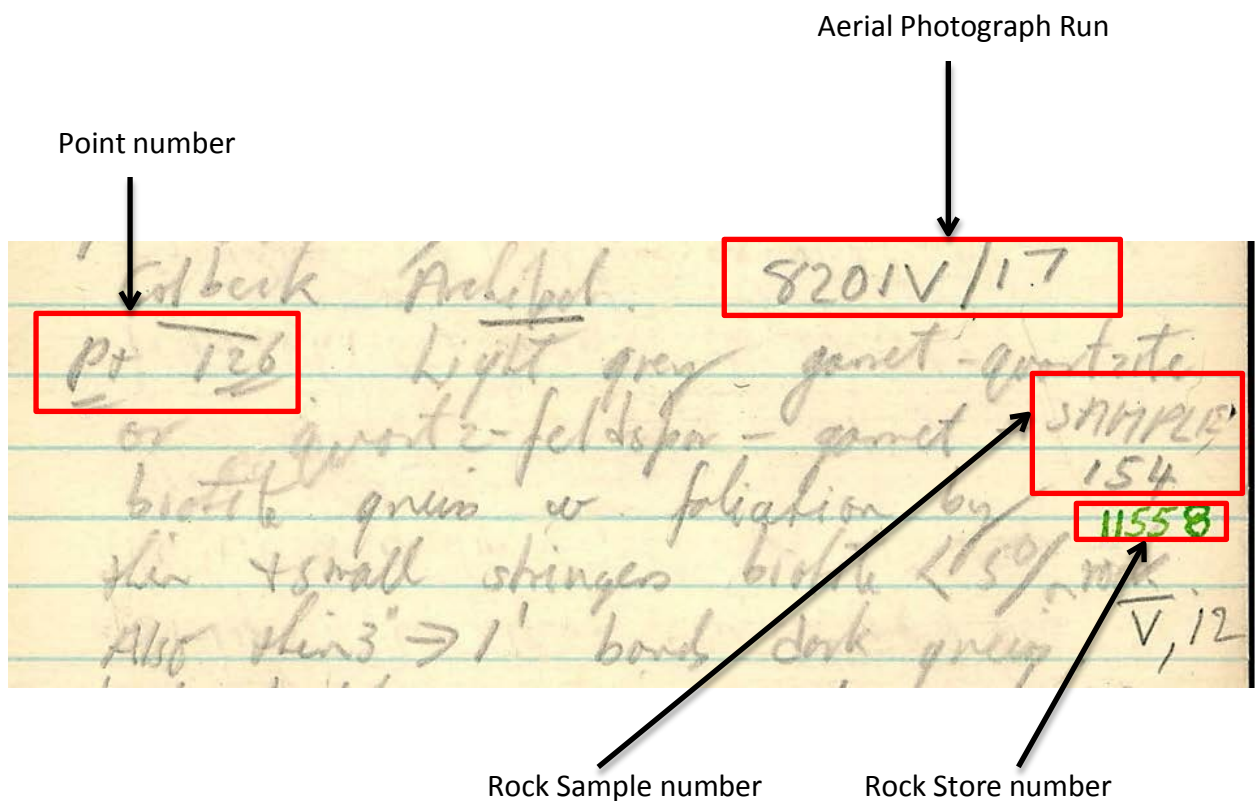 Aerial Photograph Run
Point number
Colbeck Archipel. 8201V/17
pt 126. Light grey garnet-quartzite
or quartz-feldspar-garnet- SAMPLE
154
biotite gneiss w foliation by
11558
thin + small stringers biotite <5% rock.
Also thin 3" → 1' bands dark gneiss V, 12
Rock Sample number Rock Store number